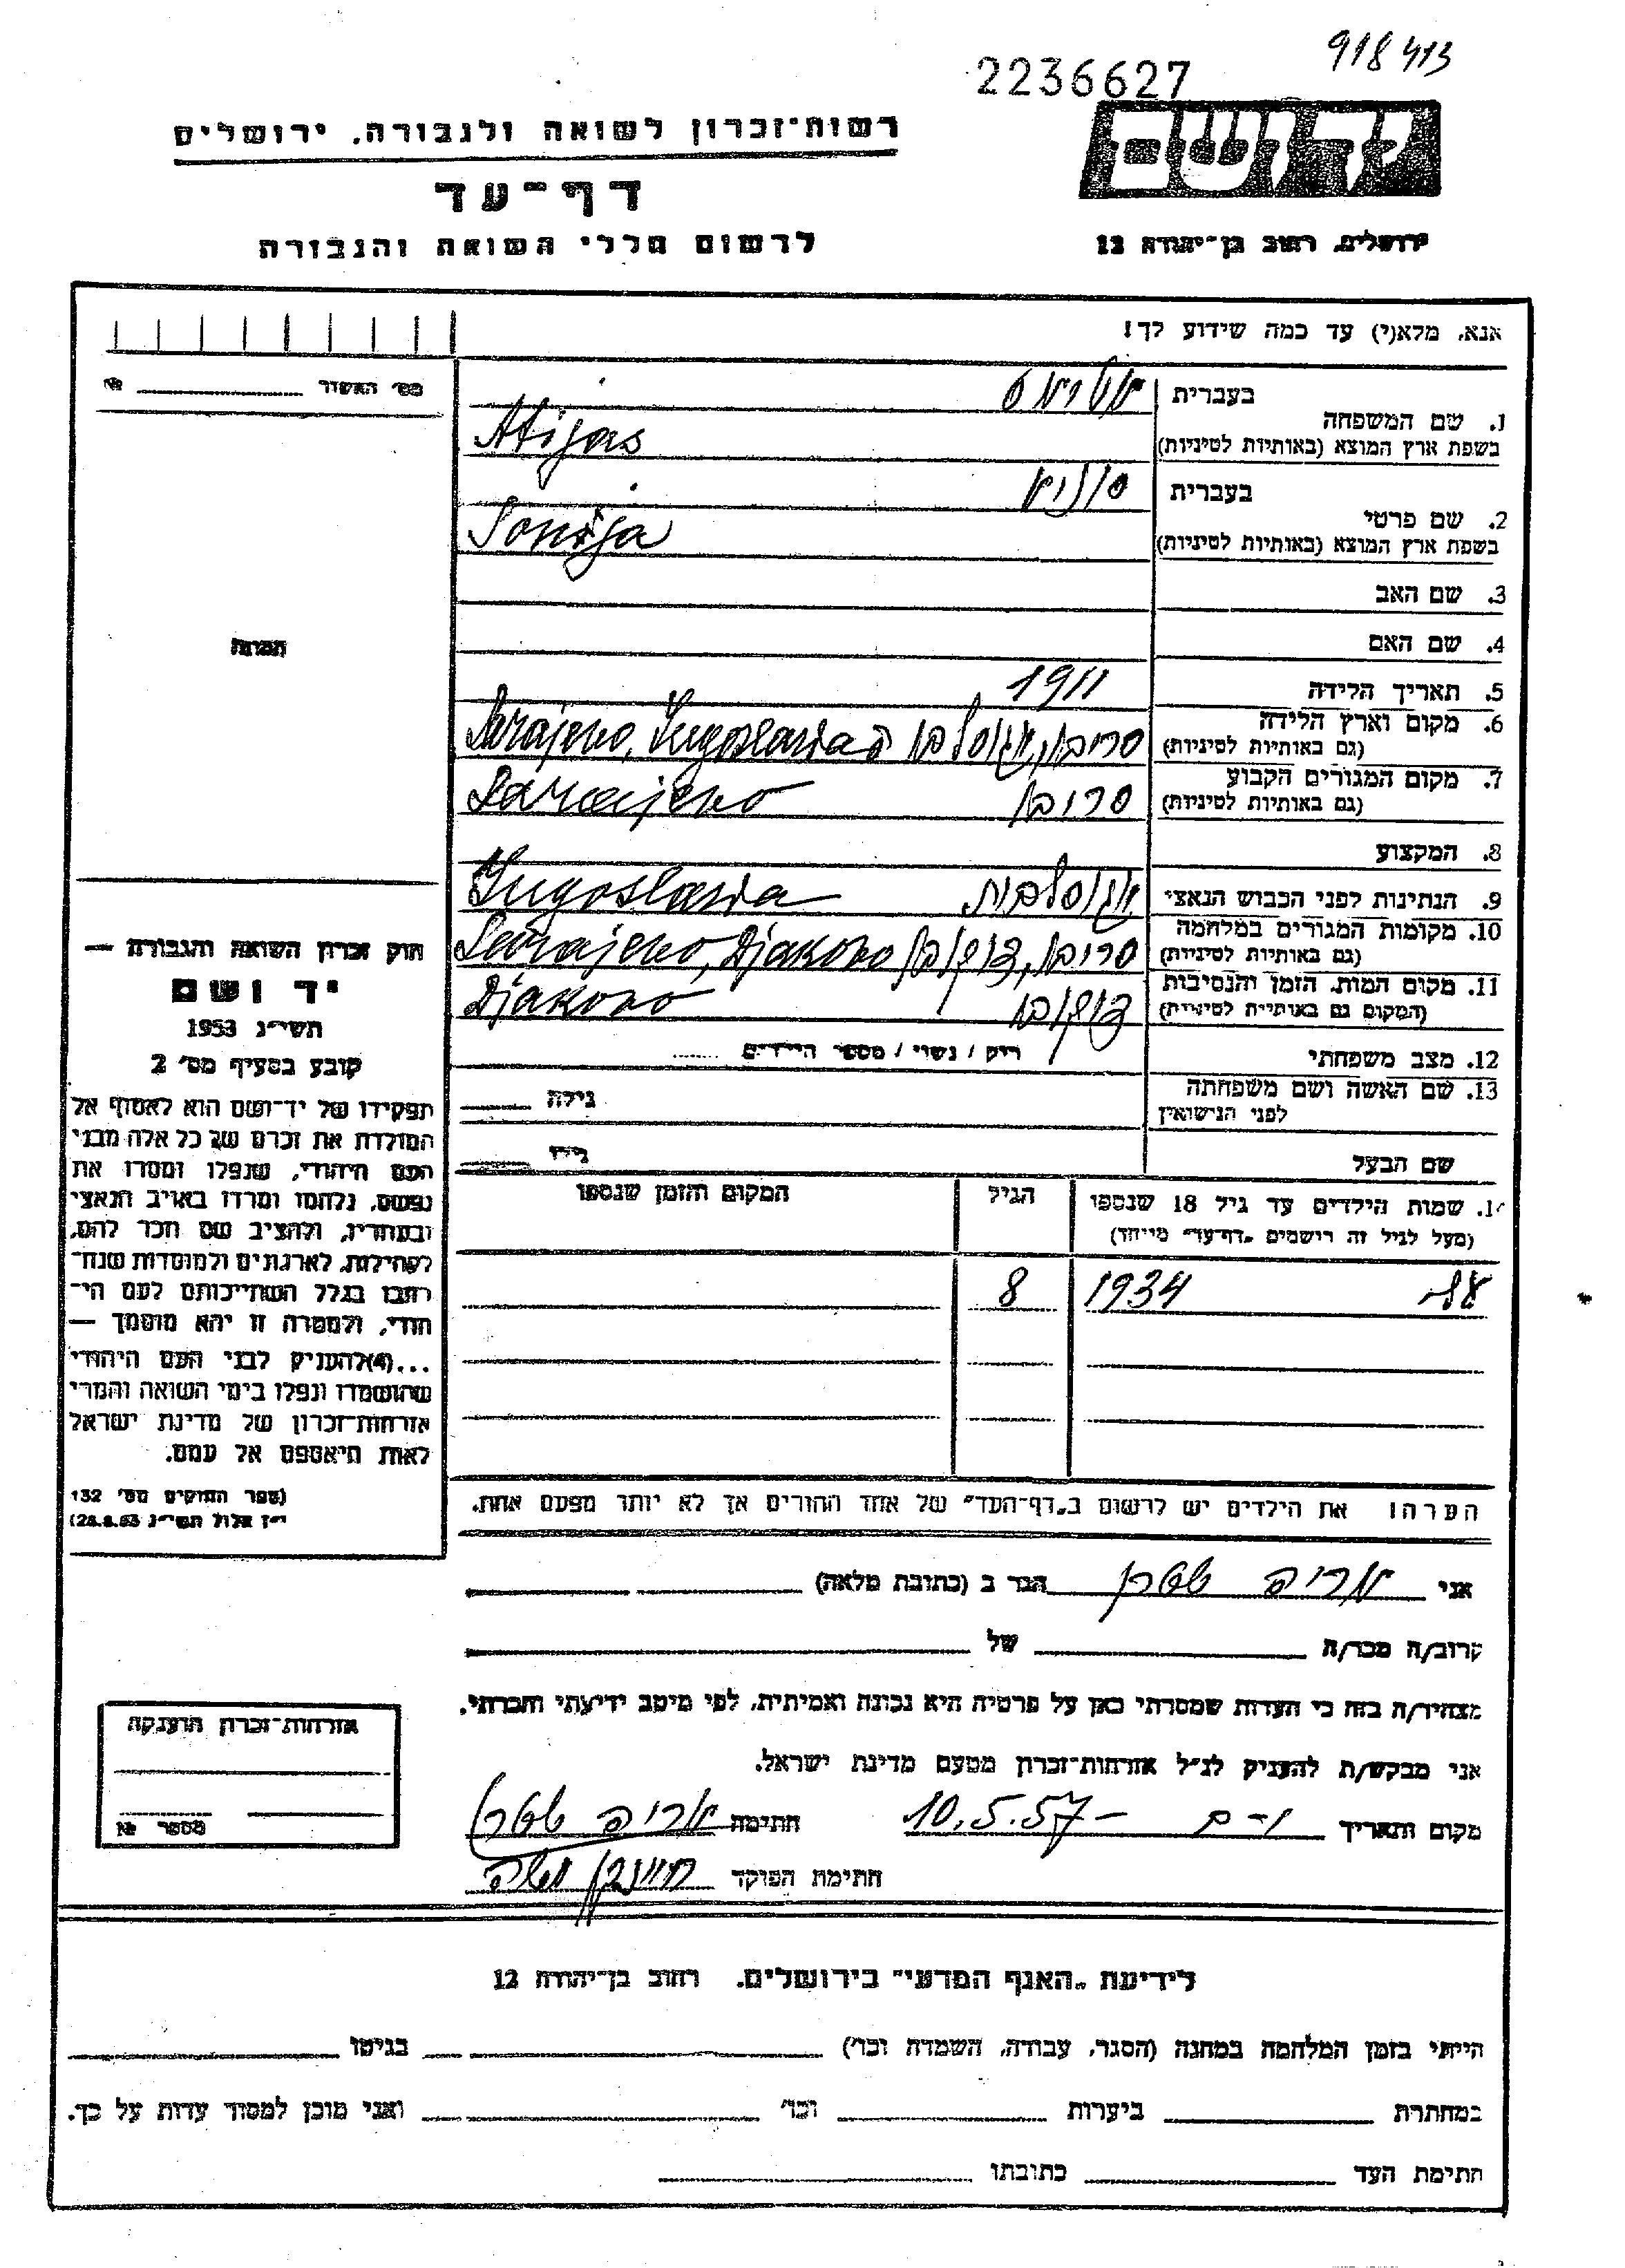 918413
2236627
יד ושם
רשות־זכרון לשואה ולגבורה, ירושלים
דף־עד
לרשום חללי השואה והגבורה
ירושלים, רחוב בן־יהודה 12
אנא, מלא(י) עד כמה שידוע לך!
מס' האשור №
1. שם המשפחה
בעברית אטיאס
בשפת ארץ המוצא (באותיות לטיניות) Atijas
2. שם פרטי
בעברית סוניא
בשפת ארץ המוצא (באותיות לטיניות) Sonija
3. שם האב
4. שם האם
תמונה
5. תאריך הלידה 1911
6. מקום וארץ הלידה
(גם באותיות לטיניות) Sarajevo, Yugoslavia
7. מקום המגורים הקבוע
(גם באותיות לטיניות) Sarajevo
8. המקצוע
9. הנתינות לפני הכבוש הנאצי Yugoslavia
10. מקומות המגורים במלחמה
(גם באותיות לטיניות) Sarajevo, Djakovo
11. מקום המות, הזמן והנסיבות
(המקום גם באותיות לטיניות) Djakovo
12. מצב משפחתי רוק / נשוי / מספר הילדים
13. שם האשה ושם משפחתה
לפני הנישואין גילה
שם הבעל גילו
14. שמות הילדים עד גיל 18 שנספו הגיל המקום והזמן שנספו
(מעל לגיל זה רושמים „דף־עד" מיוחד)
1934 8
הערה: את הילדים יש לרשום ב„דף־העד" של אחד ההורים אך לא יותר מפעם אחת.
חוק זכרון השואה והגבורה —
יד ושם
תשי״ג 1953
קובע בסעיף מס' 2
תפקידו של יד־ושם הוא לאסוף אל
המולדת את זכרם של כל אלה מבני
העם היהודי, שנפלו ומסרו את
נפשם, נלחמו ומרדו באויב הנאצי
ובעוזריו, ולהציב שם וזכר להם,
לקהילות, לארגונים ולמוסדות שנח־
רבו בגלל השתייכותם לעם הי־
הודי, ולמטרה זו יהא מוסמך —
...(4)להעניק לבני העם היהודי
שהושמדו ונפלו בימי השואה והמרי
אזרחות־זכרון של מדינת ישראל
לאות היאספם אל עמם.
(ספר החוקים מס' 132
י״ז אלול תשי״ג 28.8.53)
אני הגר ב (כתובת מלאה)
קרוב/ה מכר/ה של
מצהיר/ה בזה כי העדות שמסרתי כאן על פרטיה היא נכונה ואמיתית, לפי מיטב ידיעתי והכרתי.
אני מבקש/ת להעניק לנ״ל אזרחות־זכרון מטעם מדינת ישראל.
מקום ותאריך 10.5.57 חתימה
חתימת הפוקד
אזרחות־זכרון הוענקה
מספר №
לידיעת „האגף המדעי" בירושלים, רחוב בן־יהודה 12
הייתי בזמן המלחמה במחנה (הסגר, עבודה, השמדה וכו') בגיטו
במחתרת ביערות וכו' ואני מוכן למסור עדות על כך.
חתימת העד כתובתו